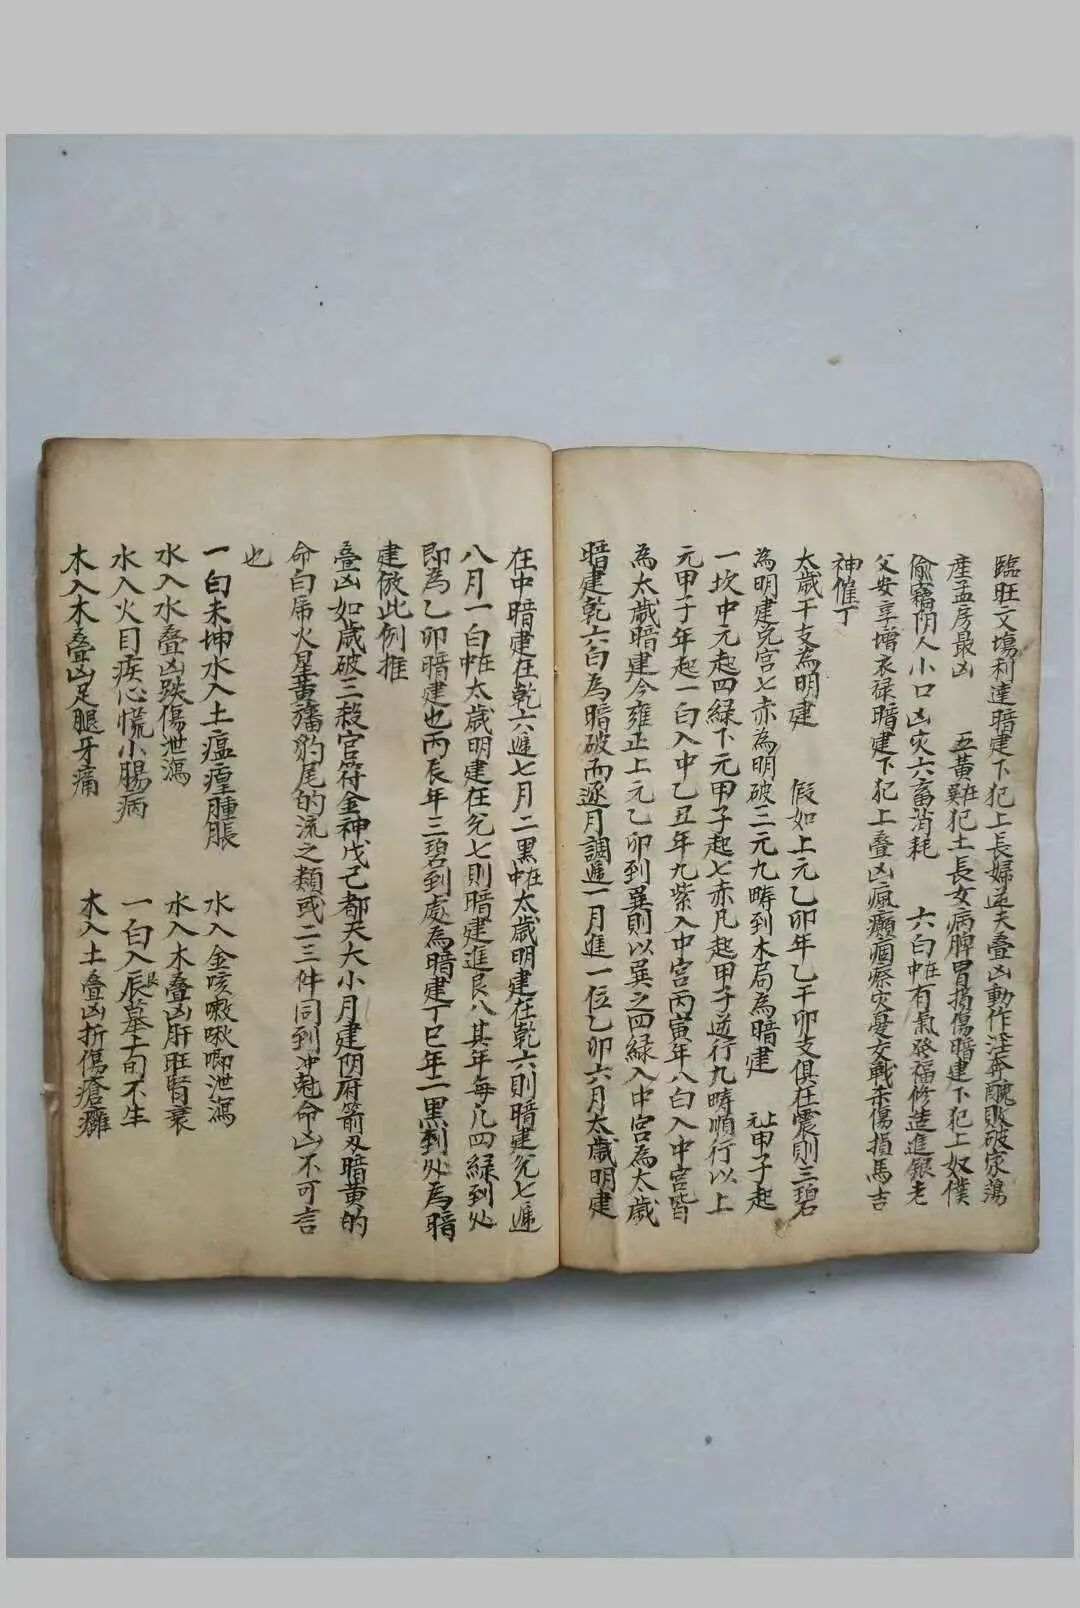 臨旺文塲利達暗建下犯上長婦逆夫叠凶動作淫奔醜敗破家蕩
産孟房最凶　五黄在犯土長女病脾胃損傷暗建下犯上奴僕
偷竊阴人小口凶灾六畜消耗　六白在中有氣發福修造進銀老
父安享增衣禄暗建下犯上叠凶瘋癲痼瘵灾憂女戰杀傷損馬吉
神催丁
太歲干支為明建　假如上元乙卯年乙干卯支俱在震則三碧
為明建兑宫七赤為明破三元九畴到木局為暗建　上元甲子起
一坎中元起四緑下元甲子起七赤凡起甲子逆行九畴順行以上
元甲子年起一白入中乙丑年九紫入中宫丙寅年八白入中宫皆
為太歲暗建今雍正上元乙卯到巽則以巽之四緑入中宫為太歲
暗建乾六白為暗破而逐月調遞一月進一位乙卯六月太歲明建
在中暗建在乾六遞七月二黑在中太歲明建在乾六則暗建兑七遞
八月一白在中太歲明建在兑七則暗建進艮八其年每凡四緑到处
即為乙卯暗建也丙辰年三碧到處為暗建丁巳年二黑到处為暗
建倣此例推
叠凶如歲破三殺官符金神戊己都天大小月建阴府箭刄暗黄的
命白虎火星黄旛豹尾的流之類或二三件同到冲尅命凶不可言
也
一白未坤水入土瘟㾮腫脹　水入金咳嗽啾唧泄瀉
水入水叠凶跌傷泄瀉　水入木叠凶肝旺腎衰
水入火目疾心慌小腸病　一白入辰墓上旬不生
木入木叠凶足腿牙痛　木入土叠凶折傷瘡癰